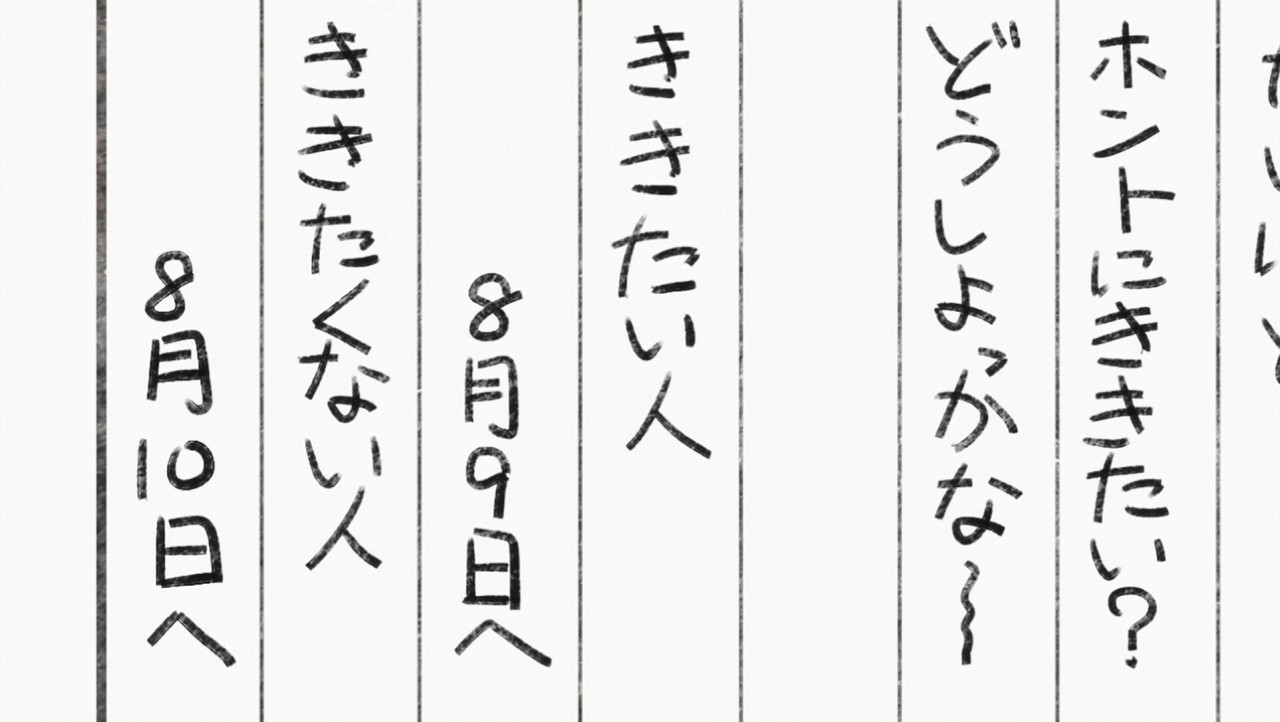 ホントにききたい？
どうしよっかな〜
ききたい人
8月9日へ
ききたくない人
8月10日へ